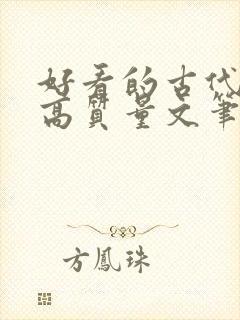 好看的古代
高质量文笔
方鳳珠